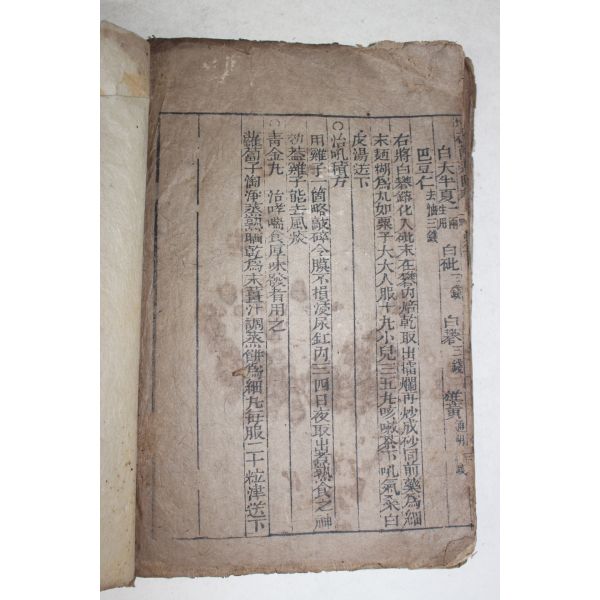 白大半夏一兩生用 白砒三錢 白礬三錢 雄黃通明三錢
巴豆仁去油三錢
右將白礬鎔化入砒末在礬內焙乾取出擂爛再炒成砂同前藥為細
末麵糊為丸如粟子大大人服十丸小兒三五丸咳嗽茶下吼氣桑白
皮湯送下
○治吼積方
用雞子一箇略敲碎令膜不損浸尿缸內三四日夜取出煮熟食之神
効蓋雞子能去風痰
○青金丸 治哮喘食厚味發者用之
蘿蔔子淘淨蒸熟晒乾為末薑汁調蒸餅為細丸每服二十粒津送下